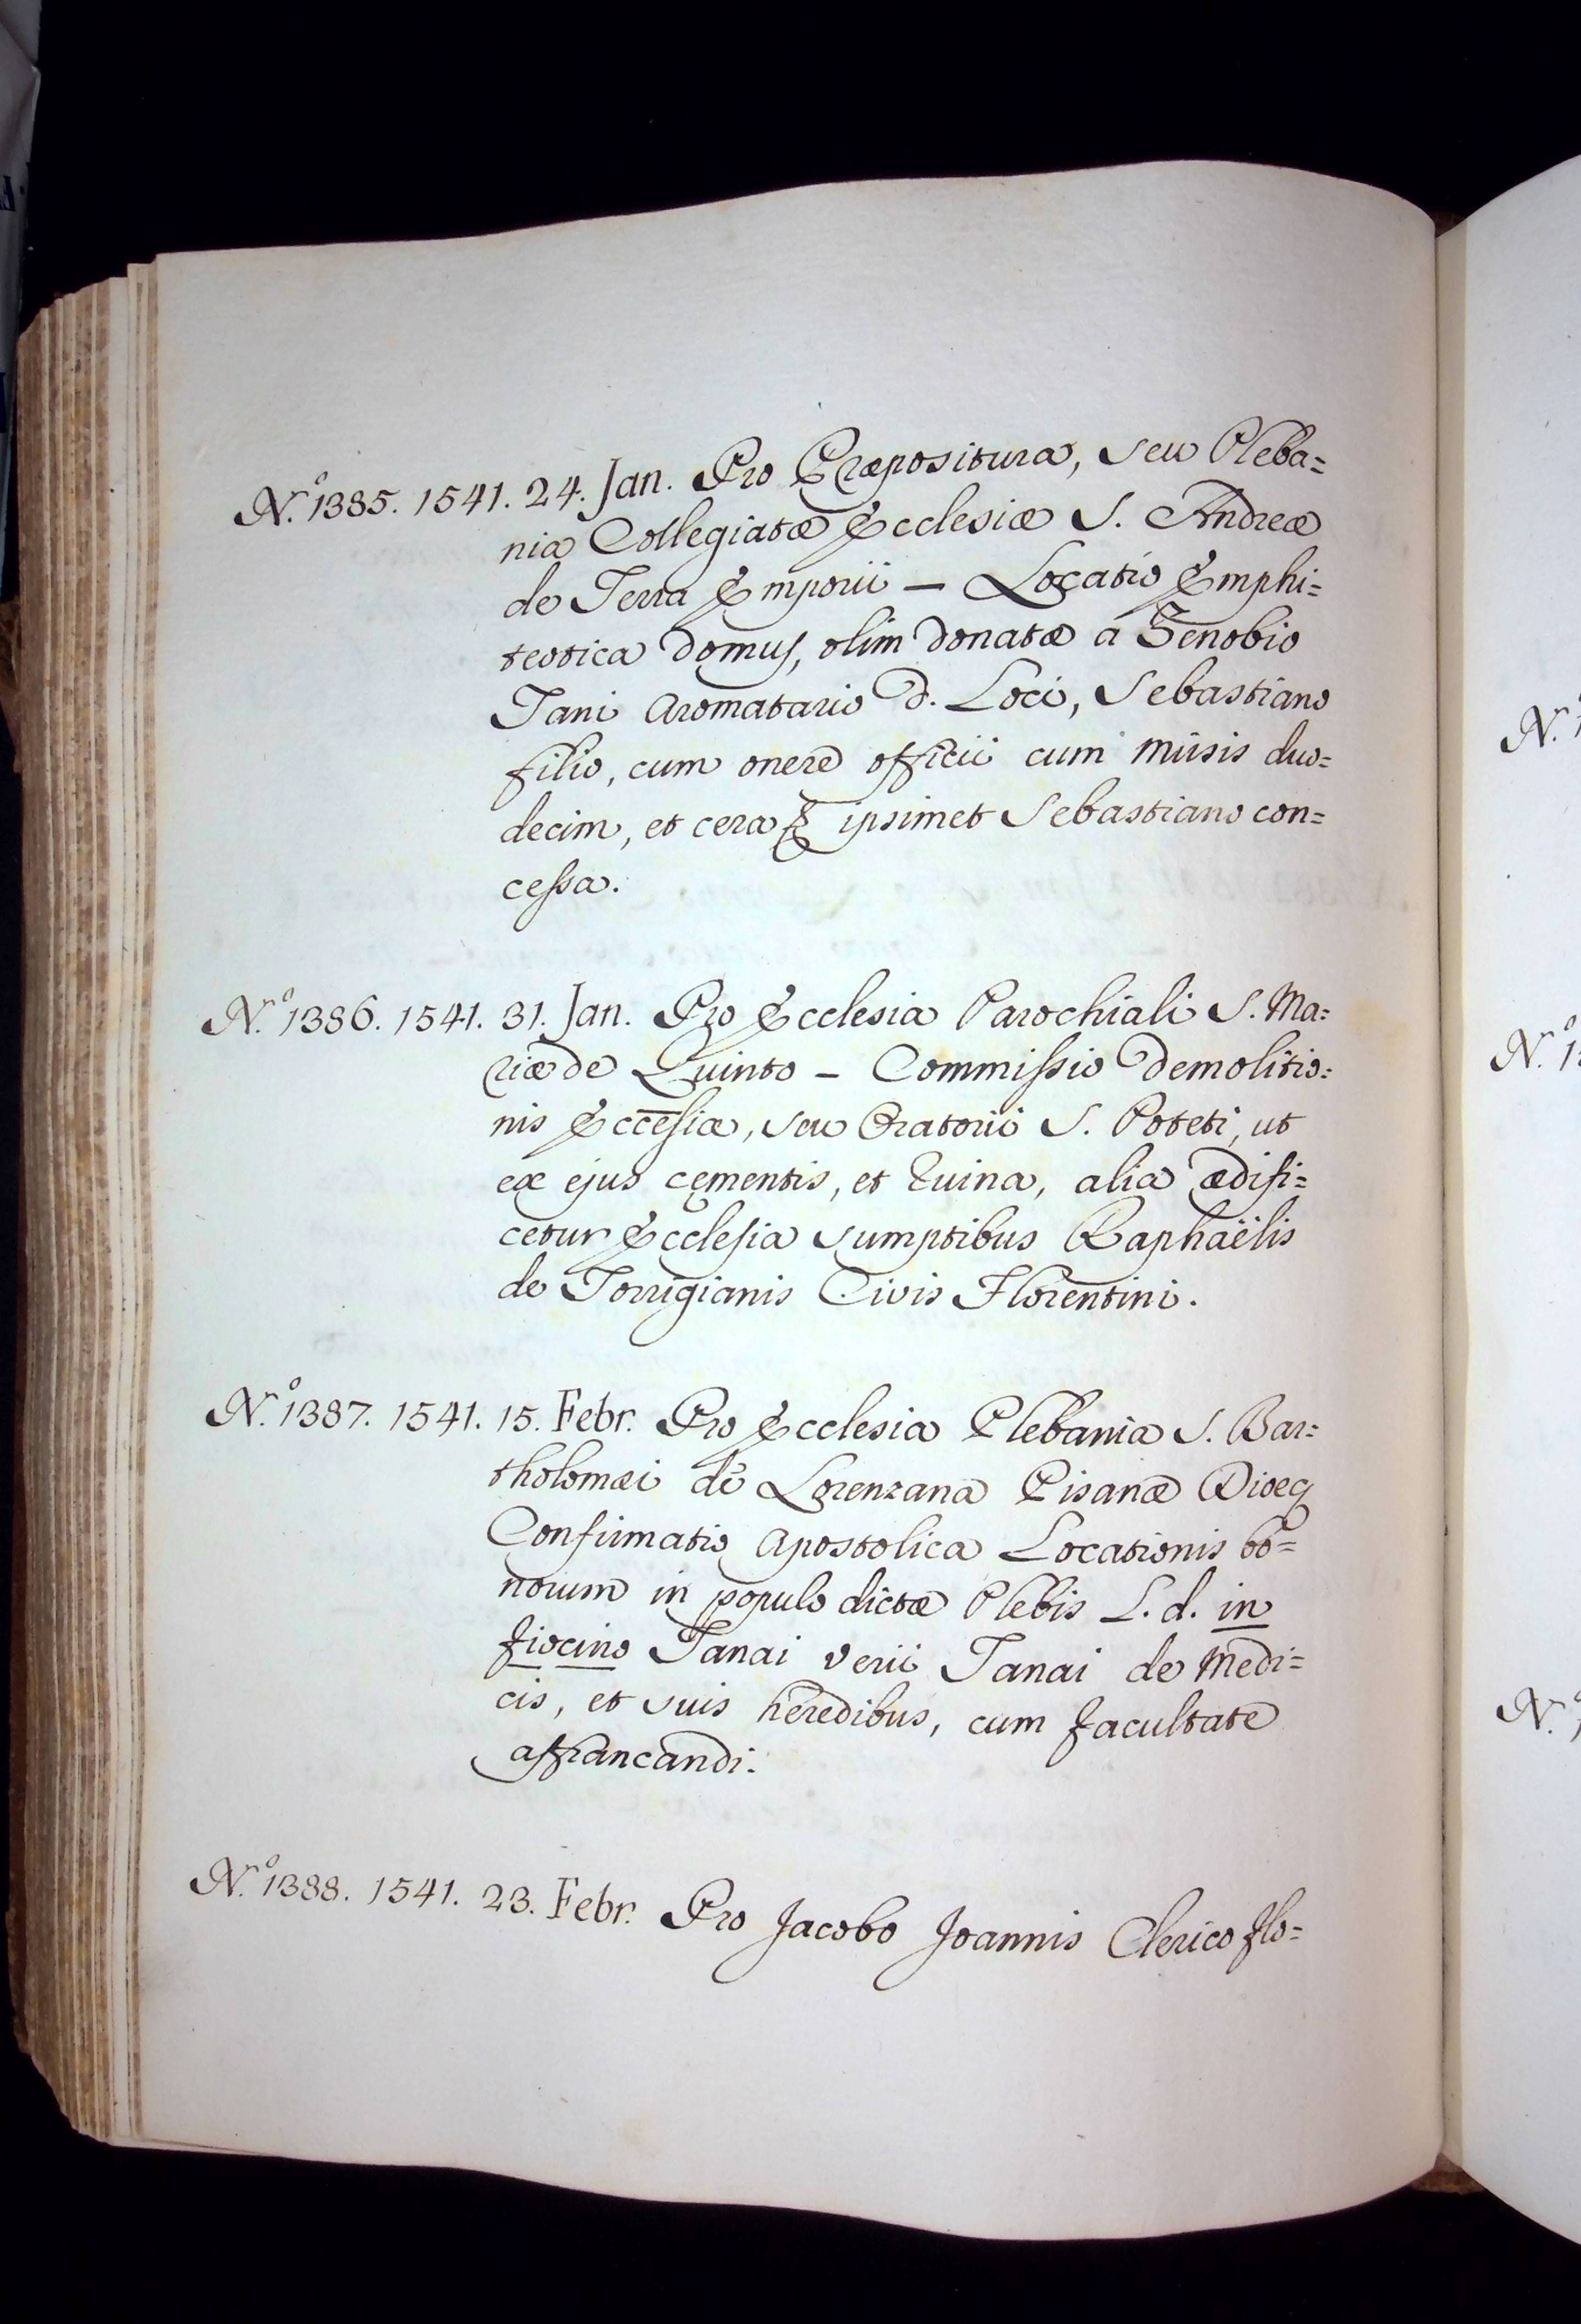 N.º 1385. 1541. 24. Jan. Pro Præpositura, seu Pleba=
nia Collegiatæ Ecclesiæ S. Andreæ
de Terra Emporii — Locatio Emphi=
teotica domus, olim donatæ a Zenobio
Tani Aromatario d. Loci, Sebastiano
filio, cum onere officii cum missis duo=
decim, et cera ipsimet Sebastiano con=
cessa.
N.º 1386. 1541. 31. Jan. Pro Ecclesia Parochiali S. Ma=
riæ de Quinto — Commissio demolitio=
nis Eccesiæ, seu Oratorii S. Poteti, ut
ex ejus cementis, et Ruina, alia ædifi=
cetur Ecclesia sumptibus Raphaëlis
de Torrigianis Civis Florentini.
N.º 1387. 1541. 15. Febr. Pro Ecclesia Plebania S. Bar=
tholomæi de Lorenzana Pisanæ Dioeç
Confirmatio Apostolica Locationis bo=
norum in populo dictæ Plebis L. d. in
fiocino Tanai Verii Tanai de Medi=
cis, et suis heredibus, cum facultate
affrancandi.
N.º 1388. 1541. 23. Febr. Pro Jacobo Joannis Clerico Flo=
N.
N.º 1
N.